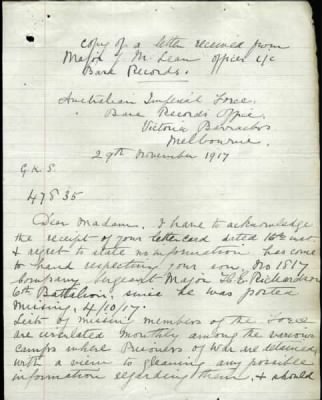 Copy of a letter received from
Major J M. Lean officer i/c
Base Records.
Australian Imperial Force.
Base Records Office.
Victoria Barracks
Melbourne.
29th November 1917
G.K.S.
47835
Dear Madam, I have to acknowledge
the receipt of your lettercard dated 16th inst
& regret to state no information has come
to hand respecting your son, No 1817
Company Sergeant Major H.E. Richardson
6th Battalion, since he was posted
missing, 4/10/17.
Lists of missing members of the Force
are circulated monthly among the various
camps where Prisoners of War are detained
with a view to gleaning any possible
information regarding them, & should